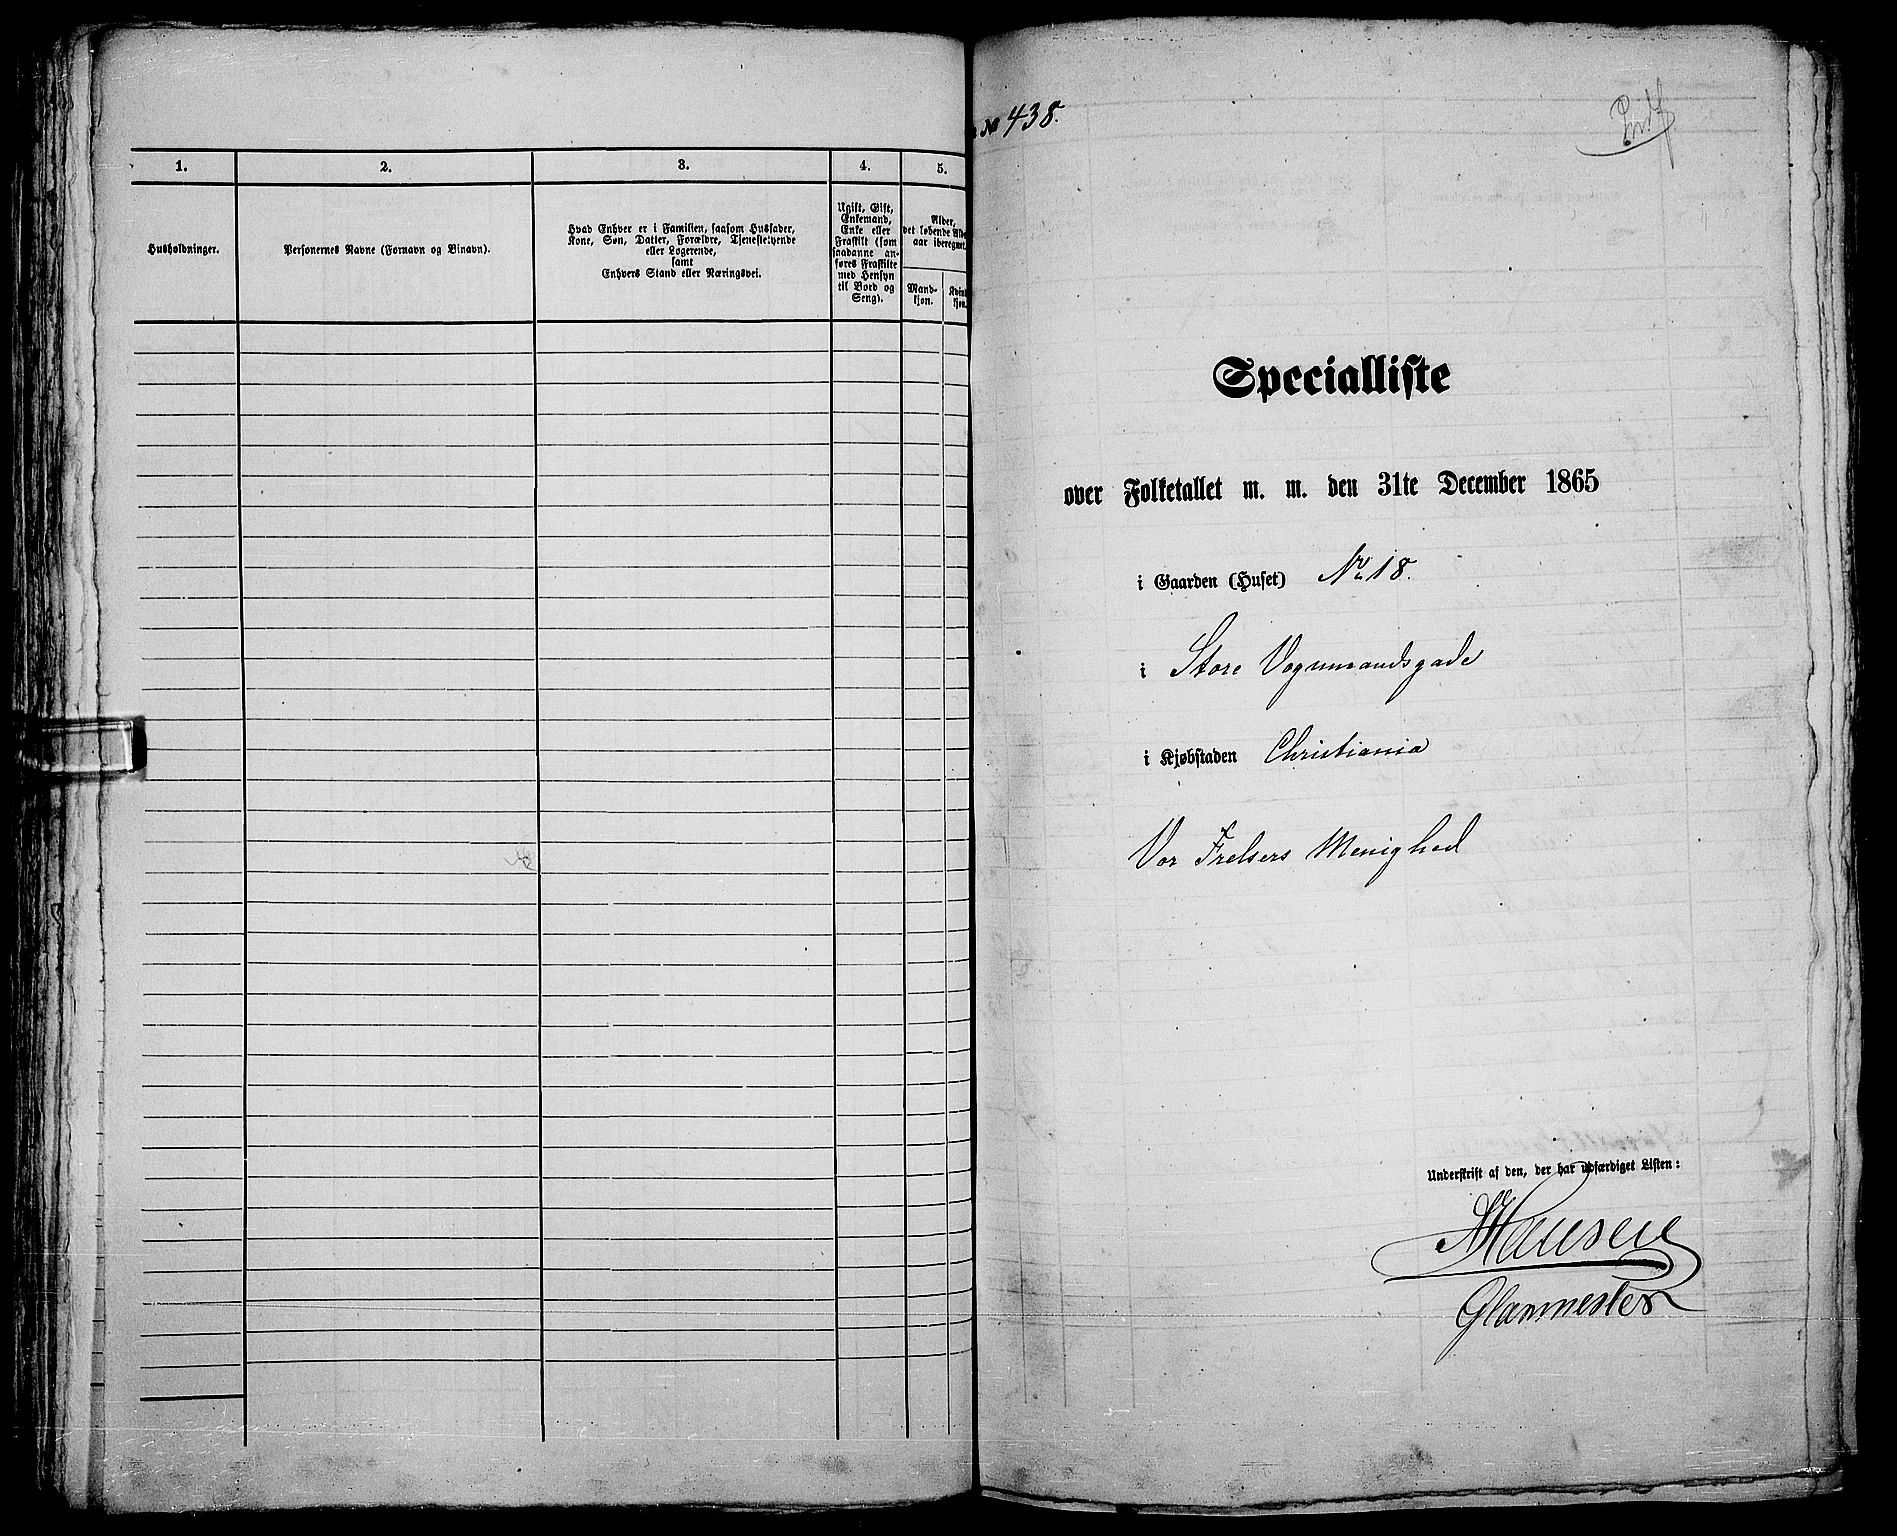 1.
2.
3.
4.
5.
Husholdninger.
Personernes Navne (Fornavn og Binavn).
Hvad Enhver er i Familien, saasom Husfader,
Kone, Søn, Datter, Forældre, Tjenestetyende
eller Logerende,
samt
Enhvers Stand eller Næringsvei.
Ugift, Gift,
Enkemand,
Enke eller
Fraskilt (som
saadanne an-
føres Fraskilte
med Hensyn
til Bord og
Seng).
Alder,
det løbende Alders-
aar iberegnet.
Mand-
kjøn.
Kvind-
kjøn.
№ 438.
Specialliste
over Folketallet m. m. den 31te December 1865
i Gaarden (Huset) No 18.
i Store Vognmandsgade
i Kjøbstaden Christiania
Vor Frelsers Menighed
Underskrift af den, der har udfærdiget Listen:
Hansen
Glarmester